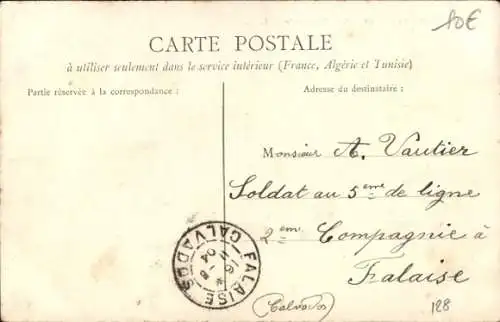 10€
CARTE POSTALE
à utiliser seulement dans le service intérieur (France, Algérie et Tunisie)
Partie réservée à la correspondance :
Adresse du destinataire :
Monsieur A. Vautier
Soldat au 5eme de ligne
2eme Compagnie à
Falaise
(Calvados)
FALAISE
CALVADOS
04
128